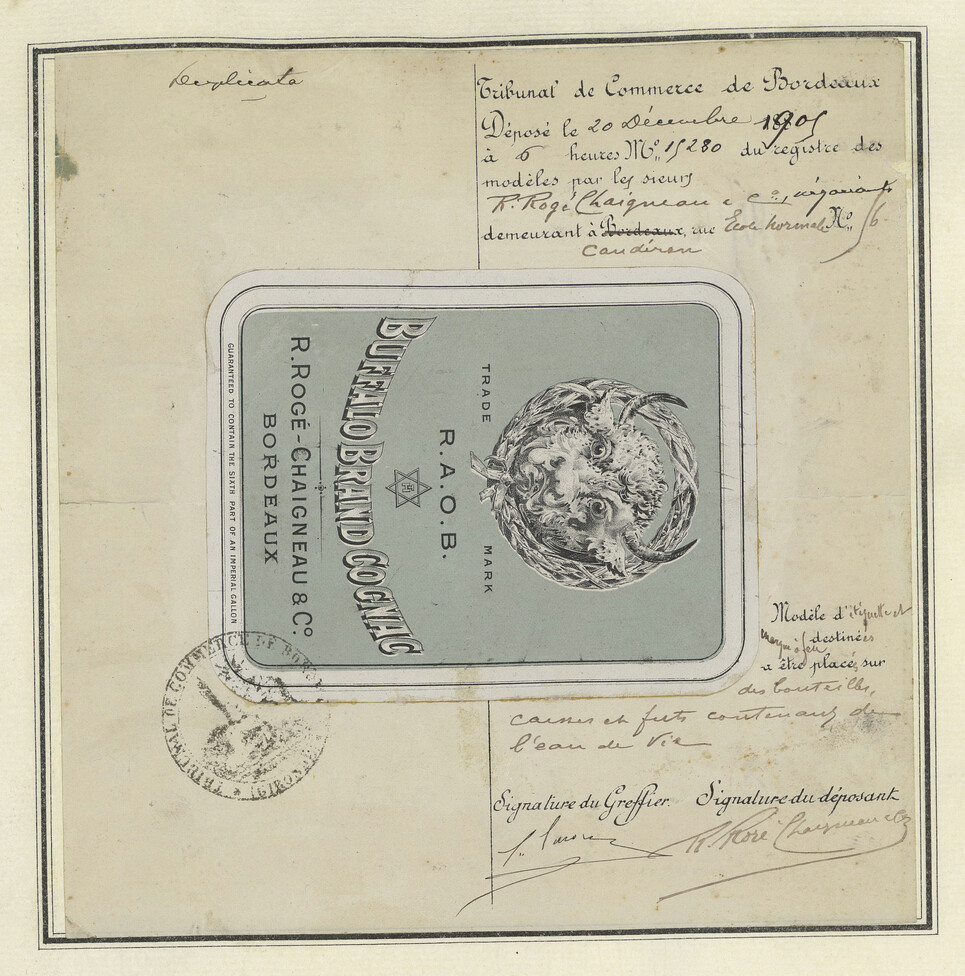 Duplicata
Tribunal de Commerce de Bordeaux
Déposé le 20 Décembre 1905
à 6 heures Nº 15280 du registre des
modèles par les sieurs
R. Rogé Chaigneau & Cie, négociants
demeurant à Bordeaux, rue Ecole Normale Nº 56
Caudéran
TRADE MARK
R.A.O.B.
BUFFALO BRAND COGNAC
R. ROGÉ-CHAIGNEAU & Cº
BORDEAUX
GUARANTEED TO CONTAIN THE SIXTH PART OF AN IMPERIAL GALLON
Modèle d'étiquette et
marque à feu destinées
a être placés sur
des bouteilles,
caisses et futs contenant de
l'eau de Vie
TRIBUNAL DE COMMERCE DE BORDEAUX
Signature du Greffier. Signature du déposant
R. Rogé Chaigneau & Co